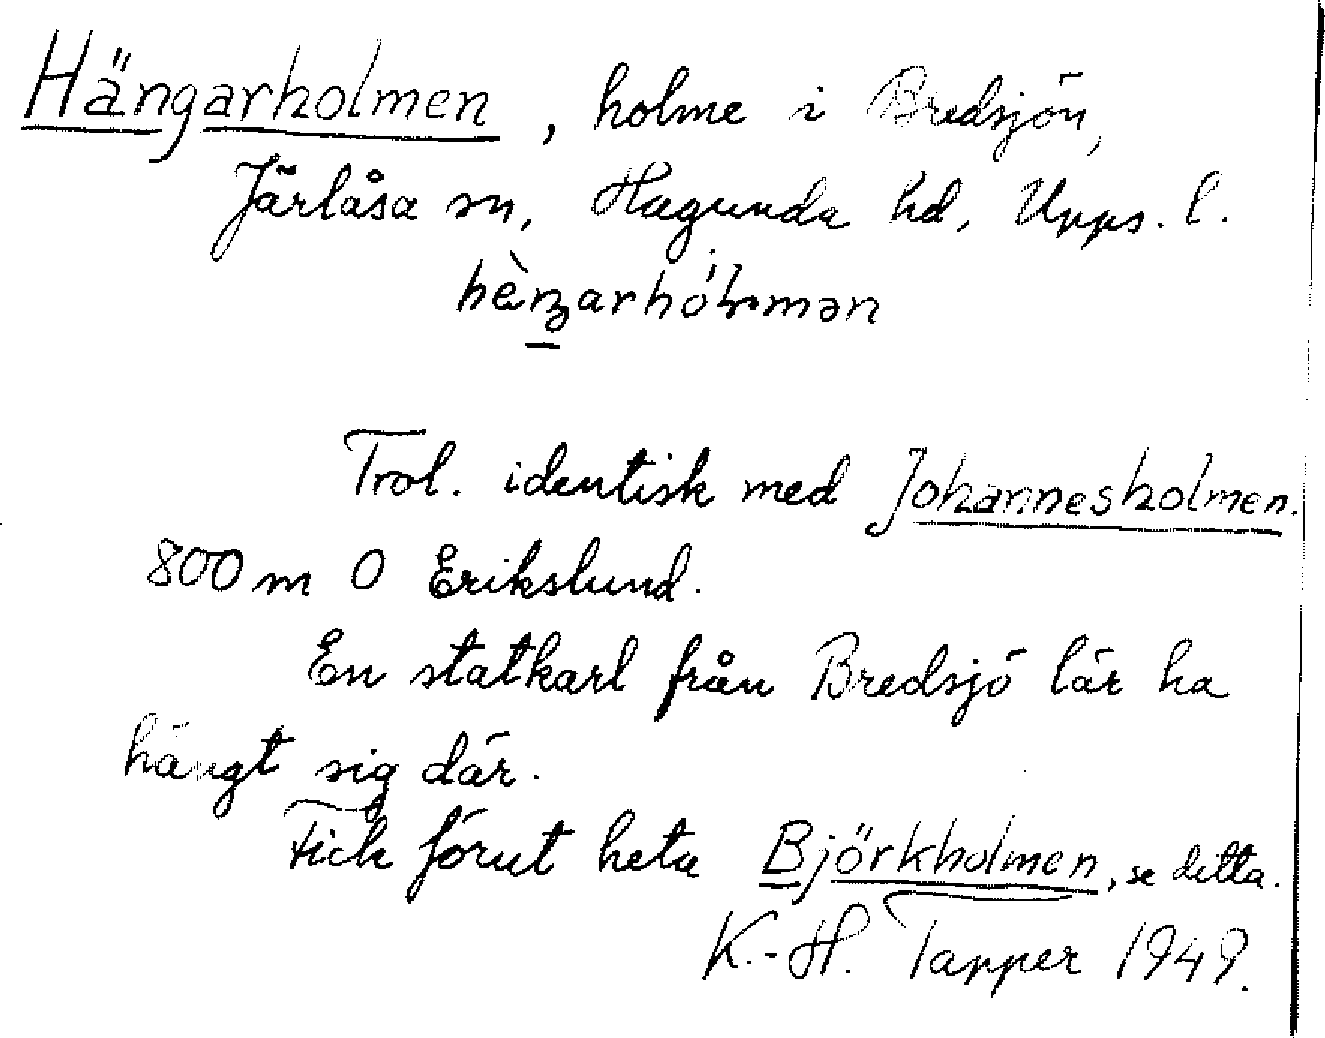 Hängarholmen, holme i Bredsjön,
Järlåsa sn, Hagunda hd, Upps. l.
Trol. identisk med Johannesholmen.
800 m O Erikslund.
En statkarl från Bredsjö lär ha
hängt sig där.
Fick förut heta Björkholmen, se detta.
K.-H. Tapper 1949.